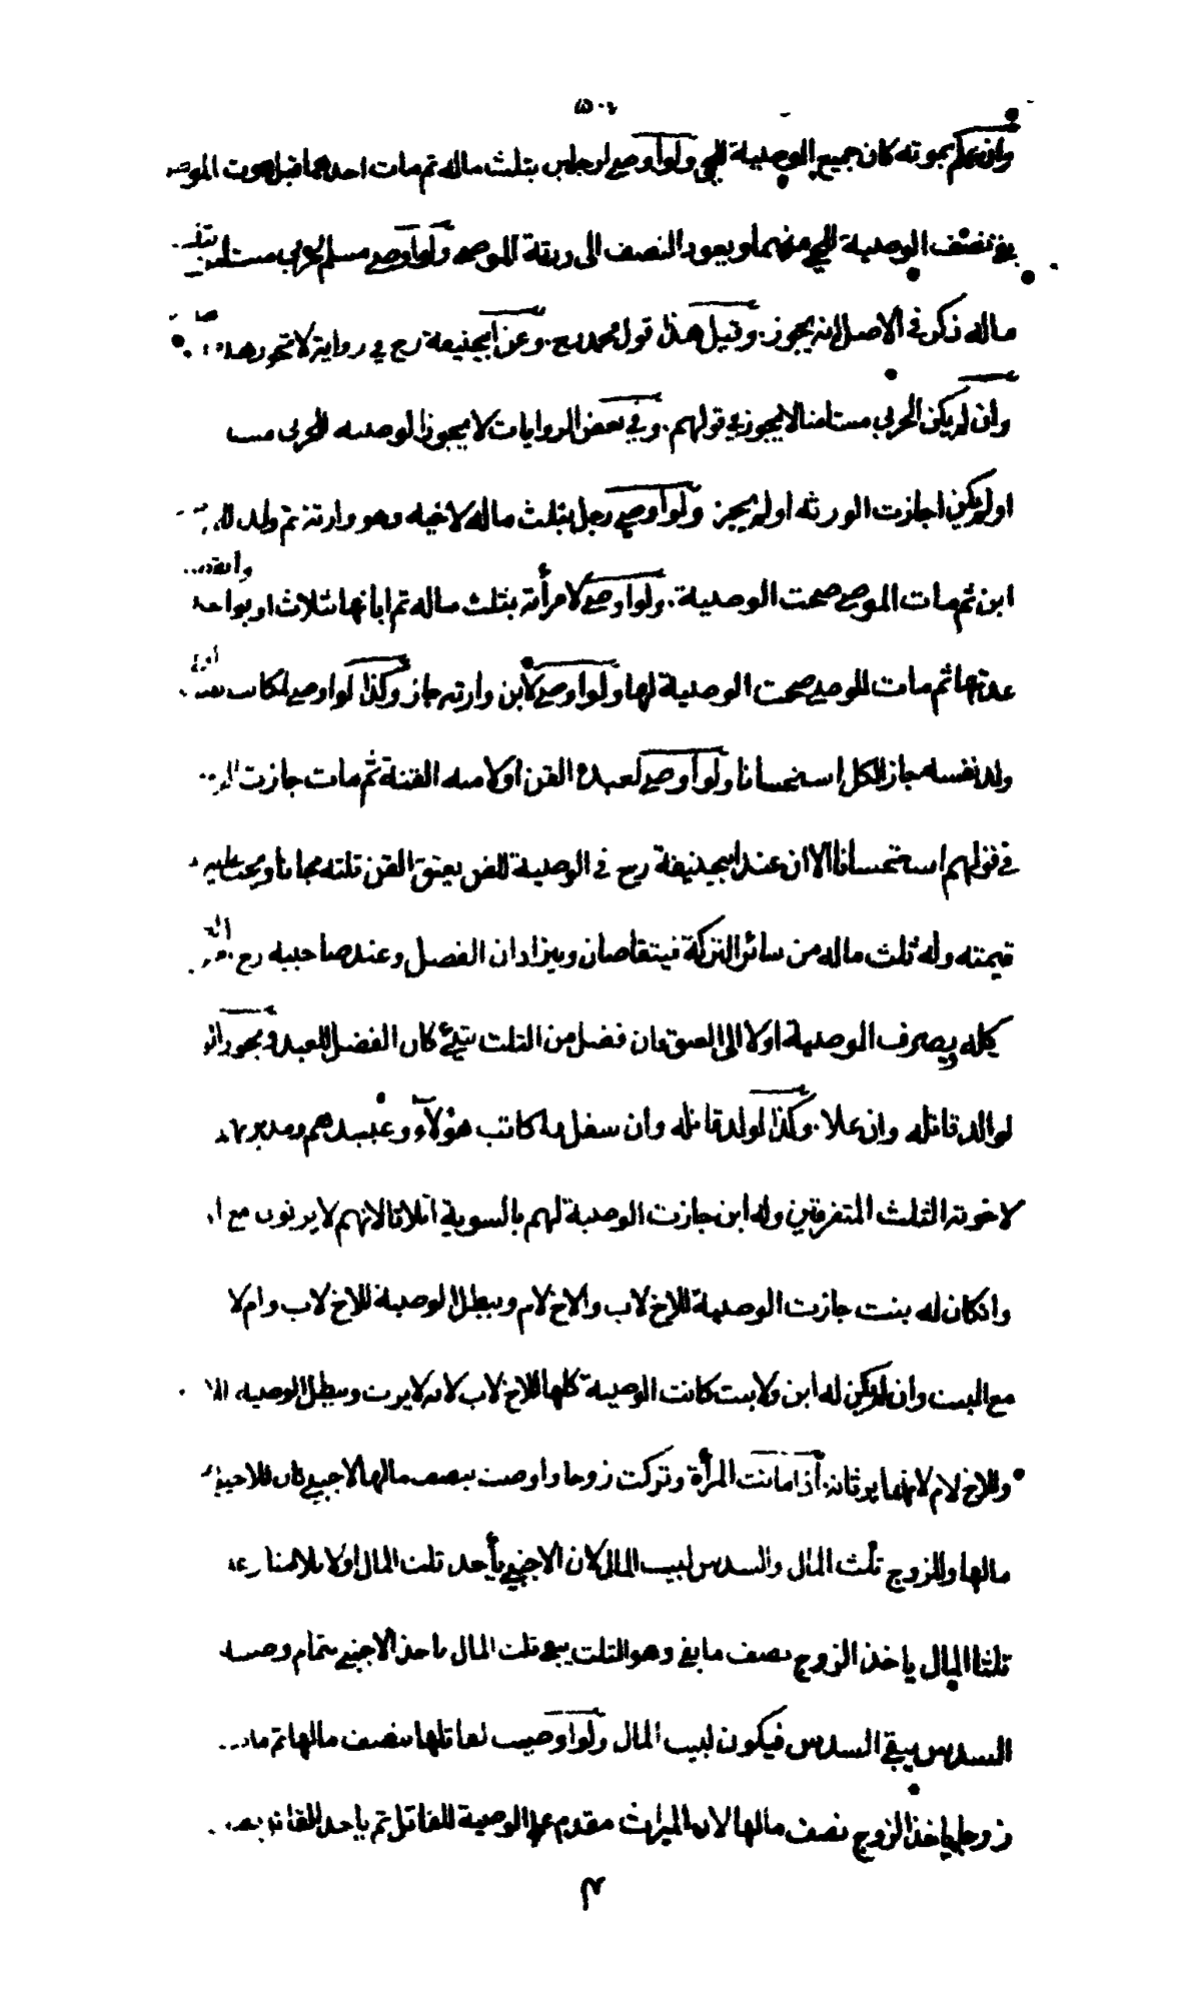 ٥٠٦
وان علم بموته كان جميع الوصية للحي ولو اوصى لرجلين بثلث ماله ثم مات احدهما قبل موت الموصى
بقي نصف الوصية للحي منهما ويعود النصف الى ورثة الموصى ولو اوصى مسلم لحربي مستامن بثلث
ماله ذكر في الاصل انه يجوز. وقيل هذا قول محمد رح. وعن ابيحنيفة رح في رواية لا تجوز هذه
وان لم يكن الحربي مستامنا لا يجوز في قولهم. وفي بعض الروايات لا يجوز الوصية للحربي
او لم يكن اجازت الورثة او لم يجز ولو اوصى رجل بثلث ماله لاخيه وهو وارثه ثم ولد له
ابن ثم مات الموصى صحت الوصية. ولو اوصى لامرأته بثلث ماله ثم ابانها بثلاث او بواحدة
عدتها ثم مات الموصى صحت الوصية لها ولو اوصى لابن وارثه جاز وكذا لو اوصى لمكاتب نفسه
ولد نفسه جاز الكل استحسانا ولو اوصى لعبده القن او لامته القنة ثم مات جازت
في قولهم استحسانا الا ان عند ابيحنيفة رح في الوصية للقن يعتق القن ثلثه مجانا ويجب عليه
قيمته وله ثلث ماله من سائر التركة فيتقاصان ويترادان الفضل وعند صاحبيه رح
كله ويصرف الوصية اولا الى العتق فان فضل من الثلث شيء كان الفضل للعبد ويجوز
لوالد قاتله وان علا. وكذا لولد قاتله وان سفل مكاتب هؤلاء وعبيدهم ومدبر
لاخوته الثلث المتفرقين وله ابن جازت الوصية لهم بالسوية اثلاثا لانهم لا يرثون مع
وان كان له بنت جازت الوصية للاخ لاب والاخ لام ويبطل الوصية للاخ لاب وام
مع البنت وان لم يكن له ابن ولا بنت كانت الوصية كلها للاخ لاب لانه لا يرث ويبطل الوصية
وللاخ لام لانهما يرثانه. اذا ماتت المرأة وتركت زوجا واوصت بنصف مالها لاجنبي كان للاجنبي
مالها وللزوج ثلث المال والسدس لبيت المال لان الاجنبي يأخذ ثلث المال اولا بلا منازعة
ثلثا المال ياخذ الزوج نصف ما بقي وهو الثلث يبقى ثلث المال ياخذ الاجنبي تمام وصيته
السدس يبقى السدس فيكون لبيت المال ولو اوصيت لقاتلها بنصف مالها ثم ماتت
زوجها ياخذ الزوج نصف مالها لان الميراث مقدم على الوصية للقاتل ثم ياخذ القاتل